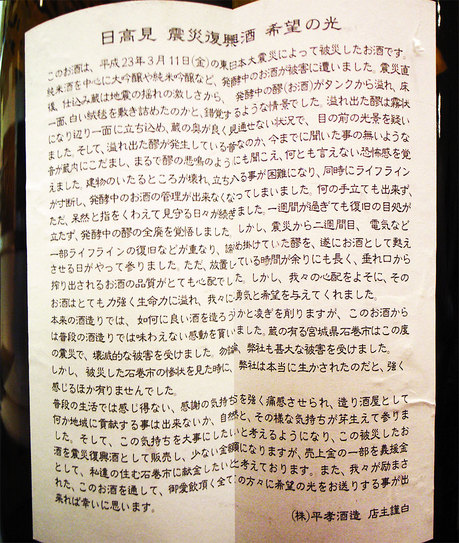 日高見 震災復興酒 希望の光
このお酒は、平成23年3月11日(金)の東日本大震災によって被災したお酒です
純米酒を中心に大吟醸や純米吟醸など、発酵中のお酒が被害に遭いました。震災直
後、仕込み蔵は地震の揺れの激しさから、発酵中の醪(お酒)がタンクから溢れ、床
一面、白い絨毯を敷き詰めたのかと、錯覚するような情景でした。溢れ出た醪は霧状
になり辺り一面に立ち込め、蔵の奥が良く見通せない状況で、目の前の光景を疑い
ました。そして、溢れ出た醪が発生している音なのか、今までに聞いた事の無いような
音が蔵内にこだまし、まるで醪の悲鳴のようにも聞こえ、何とも言えない恐怖感を覚
えました。建物のいたるところが壊れ、立ち入る事が困難になり、同時にライフライン
が寸断し、発酵中のお酒の管理が出来なくなってしまいました。何の手立ても出来ず、
ただ、呆然と指をくわえて見守る日々が続きました。一週間が過ぎても復旧の目処が
立たず、発酵中の醪の全廃を覚悟しました。しかし、震災から二週間目、電気など
一部ライフラインの復旧などが重なり、諦め掛けていた醪を、遂にお酒として甦え
させる日がやって参りました。ただ、放置している時間が余りにも長く、垂れ口から
搾り出されるお酒の品質がとても心配でした。しかし、我々の心配をよそに、その
お酒はとても力強く生命力に溢れ、我々に勇気と希望を与えてくれました。
本来の酒造りでは、如何に良い酒を造ろうかと凌ぎを削りますが、このお酒から
は普段の酒造りでは味わえない感動を貰いました。蔵の有る宮城県石巻市はこの度
の震災で、壊滅的な被害を受けました。勿論、弊社も甚大な被害を受けました。
しかし、被災した石巻市の惨状を見た時に、弊社は本当に生かされたのだと、強く
感じるほか有りませんでした。
普段の生活では感じ得ない、感謝の気持ちを強く痛感させられ、造り酒屋として
何か地域に貢献する事は出来ないか、自然と、その様な気持ちが芽生えて参りま
した。そして、この気持ちを大事にしたいと考えるようになり、この被災したお
酒を震災復興酒として販売し、少ない金額になりますが、売上金の一部を義援金
として、私達の住む石巻市に献金したいと考えております。また、我々が励まさ
れた、このお酒を通して、御愛飲頂く全ての方々に希望の光をお送りする事が出
来れば幸いに思います。
(株)平孝酒造 店主謹白